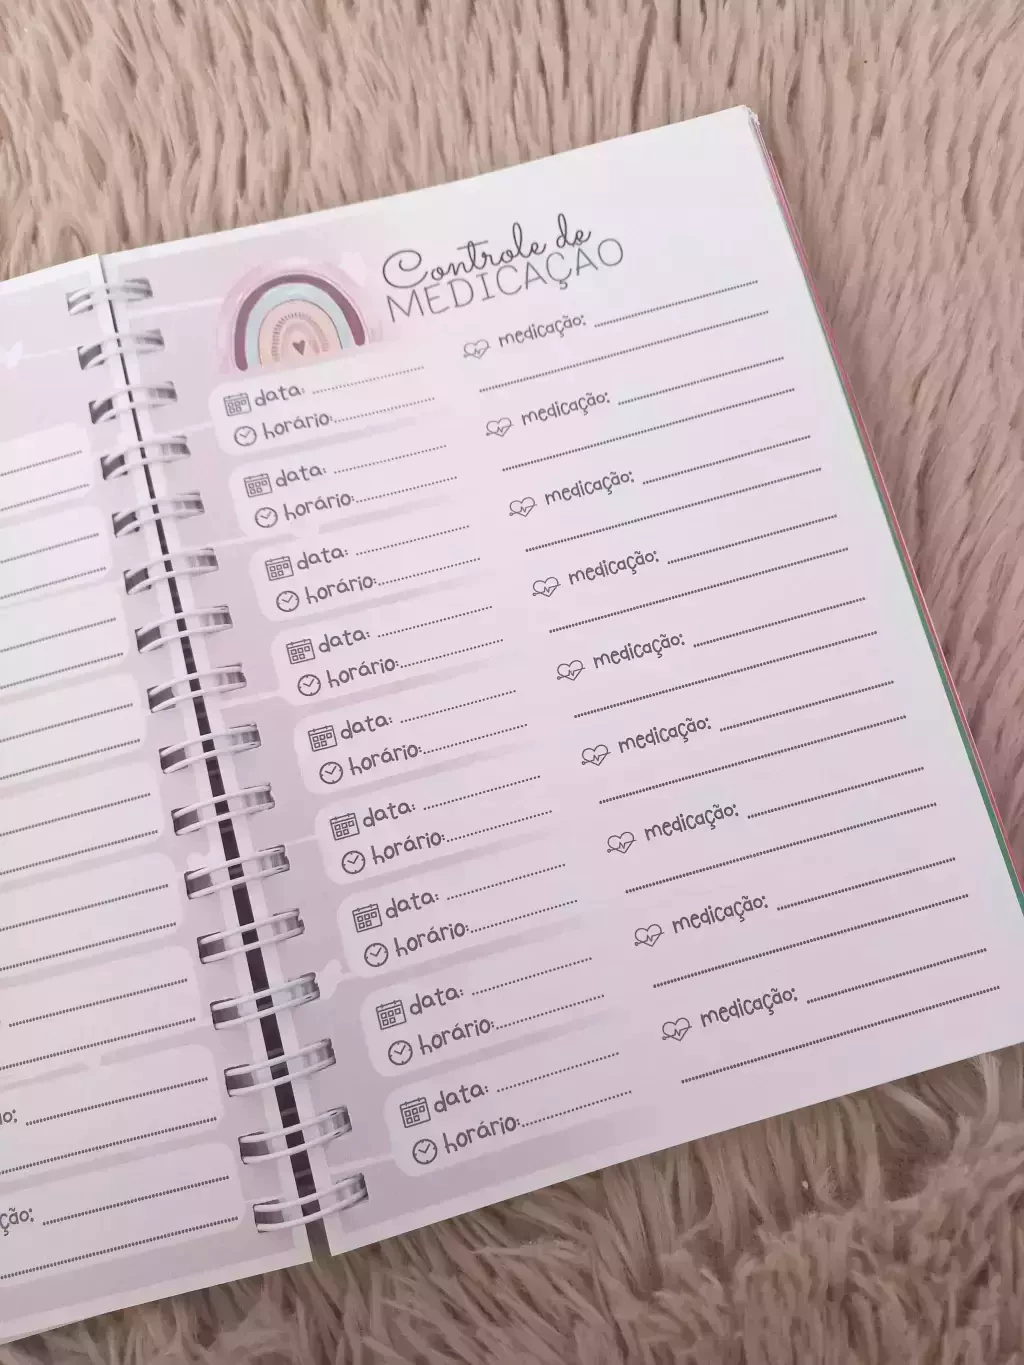 o:
ção:
Controle de
MEDICAÇÃO
data:
horário:
medicação:
data:
horário:
medicação:
data:
horário:
medicação:
data:
horário:
medicação:
data:
horário:
medicação:
data:
horário:
medicação:
data:
horário:
medicação:
data:
horário:
medicação:
data:
horário:
medicação: